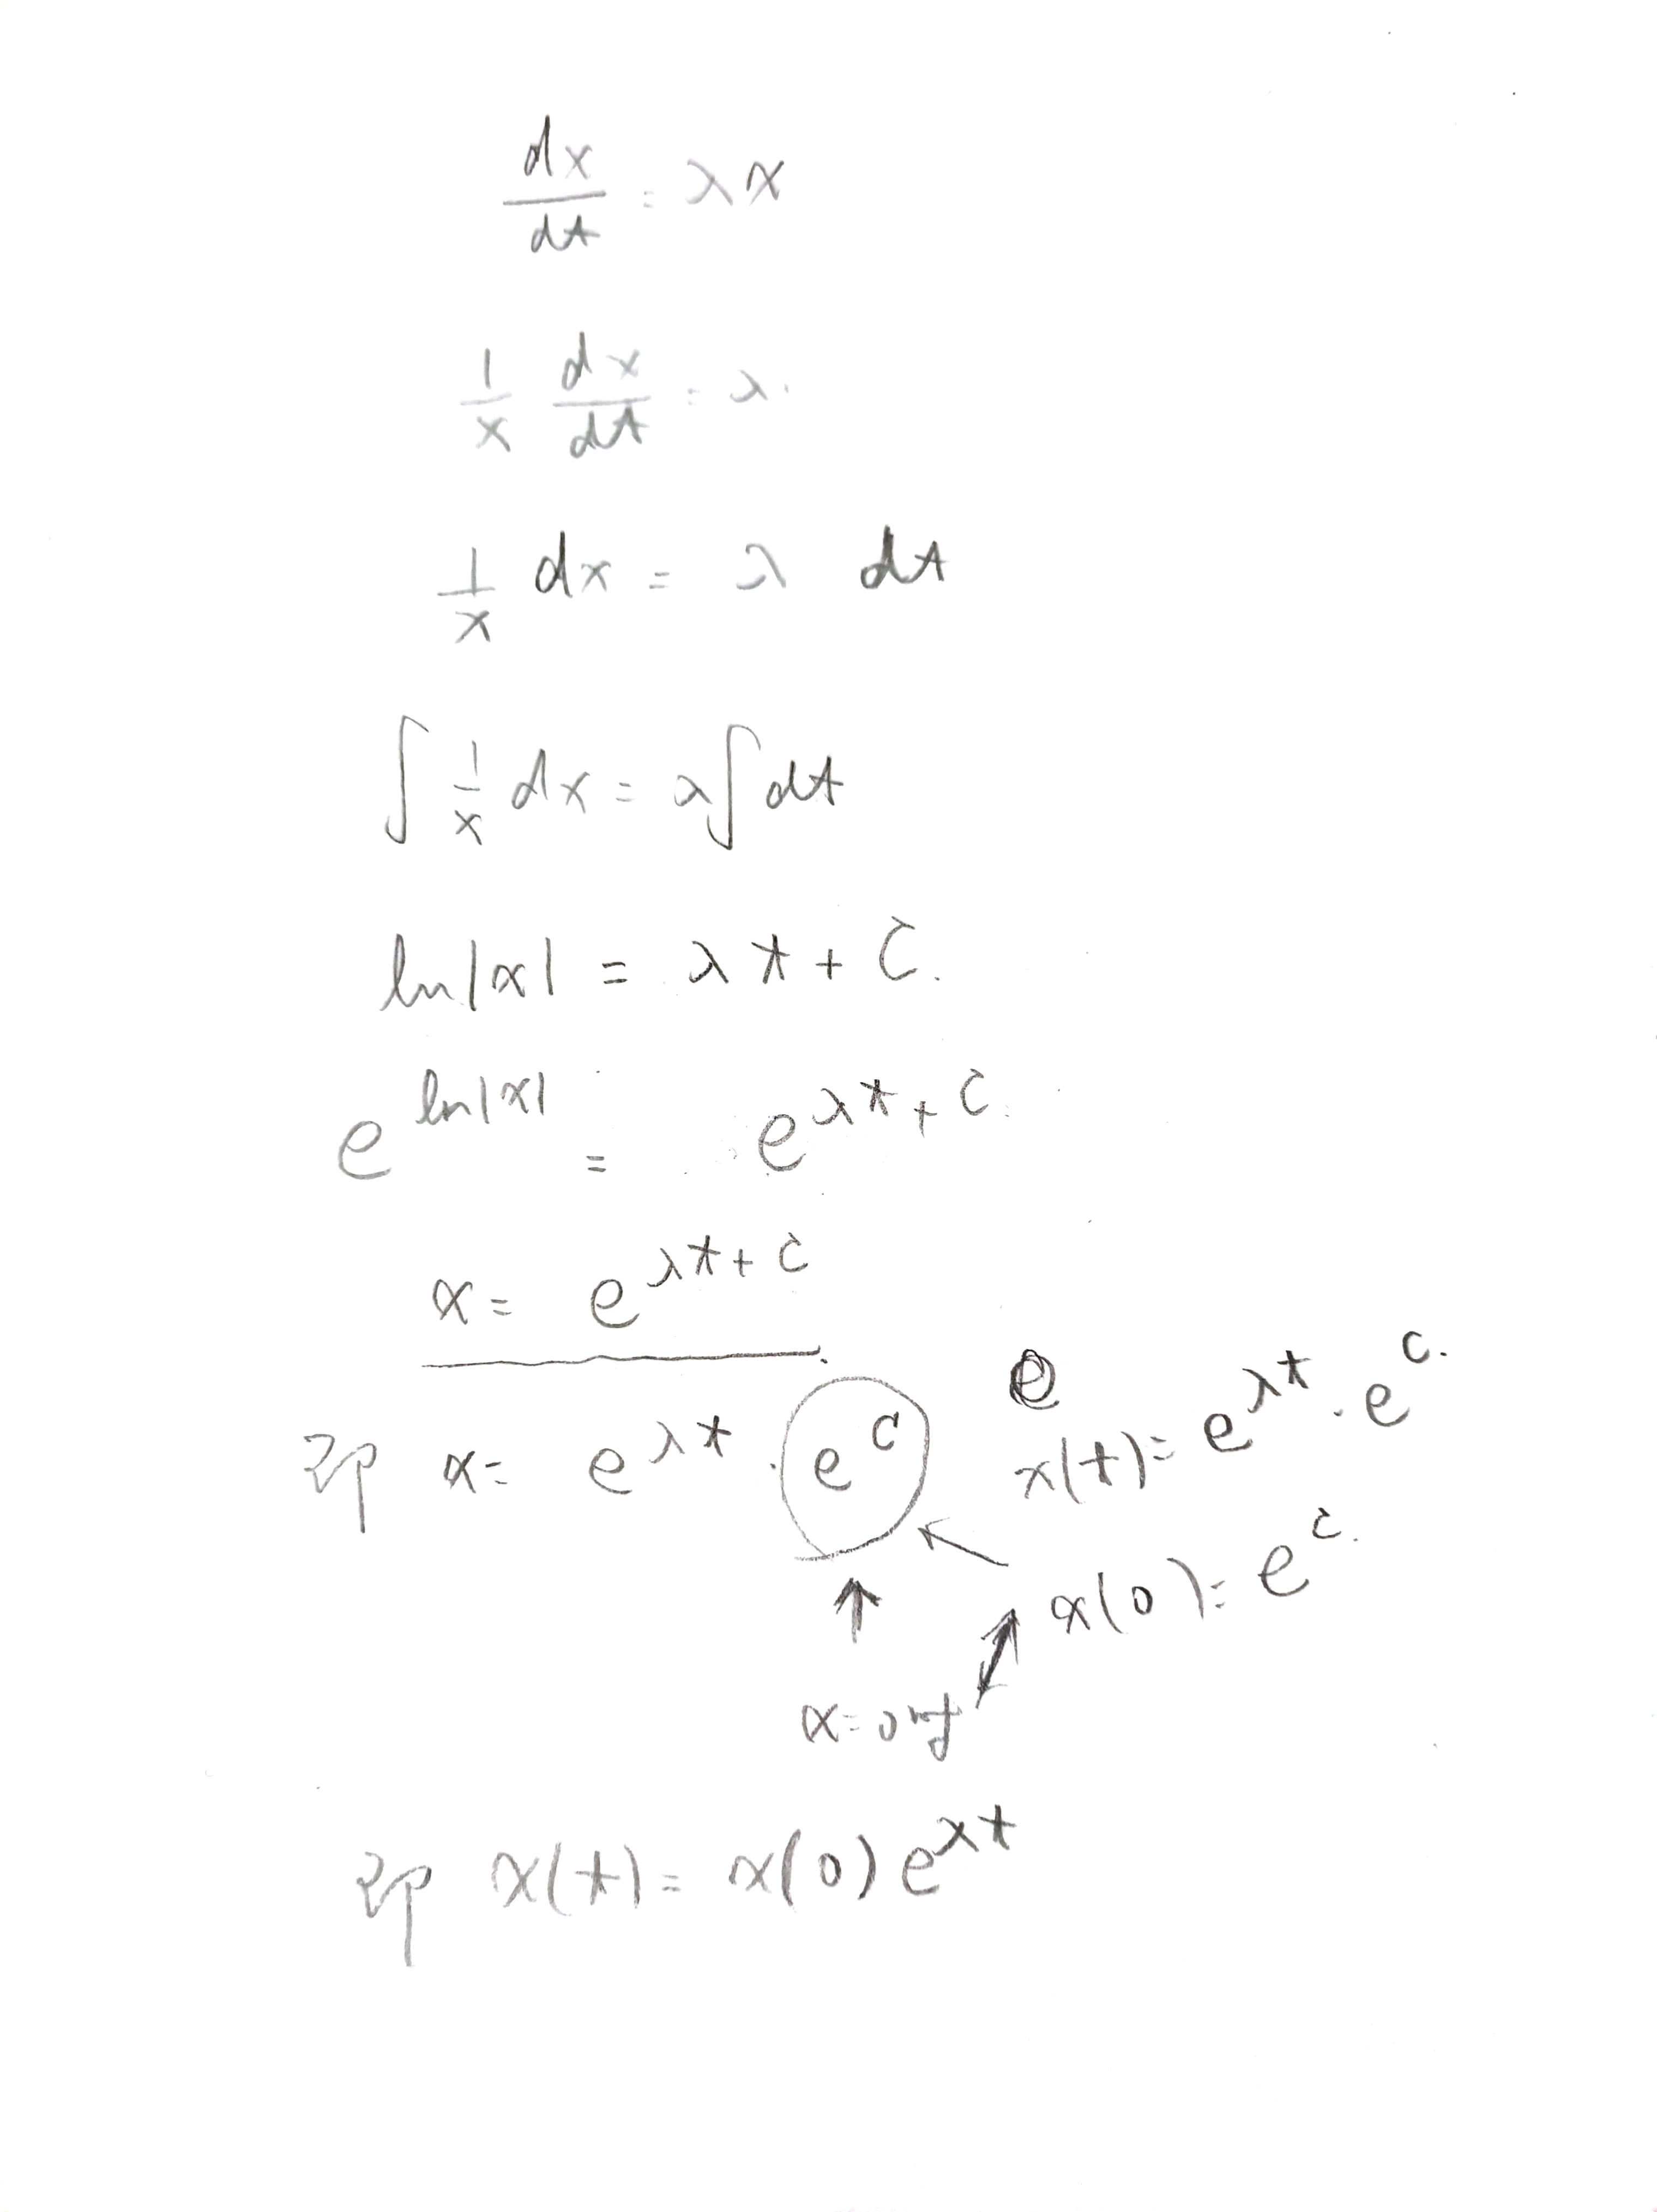 dx/dt = λx
1/x dx/dt = λ.
1/x dx = λ dt
∫ 1/x dx = λ∫ dt
ln|x| = λt + C.
e^{ln|x|} = e^{λt + C}.
x = e^{λt + C}.
即 x = e^{λt} · e^C
x(t) = e^{λt} · e^C.
x(0) = e^C.
x=0时
即 x(t) = x(0) e^{λt}